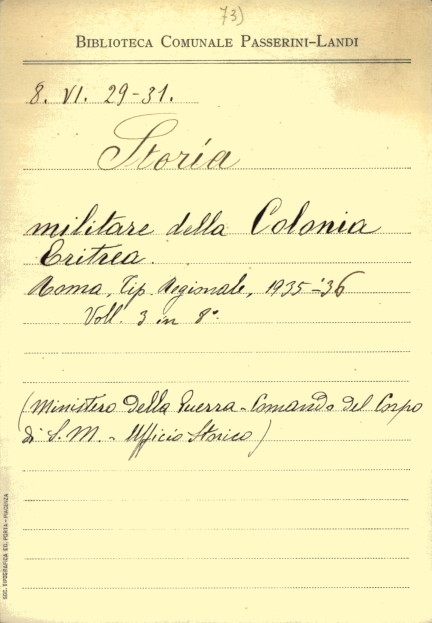 73)
BIBLIOTECA COMUNALE PASSERINI-LANDI
8. VI. 29-31.
Storia
militare della Colonia
Eritrea.
Roma, Tip. Regionale, 1935-'36
Voll. 3 in 8°.
(Ministero della Guerra - Comando del Corpo
di S. M. - Ufficio Storico)
SOC. TIPOGRAFICA ED. PORTA - PIACENZA